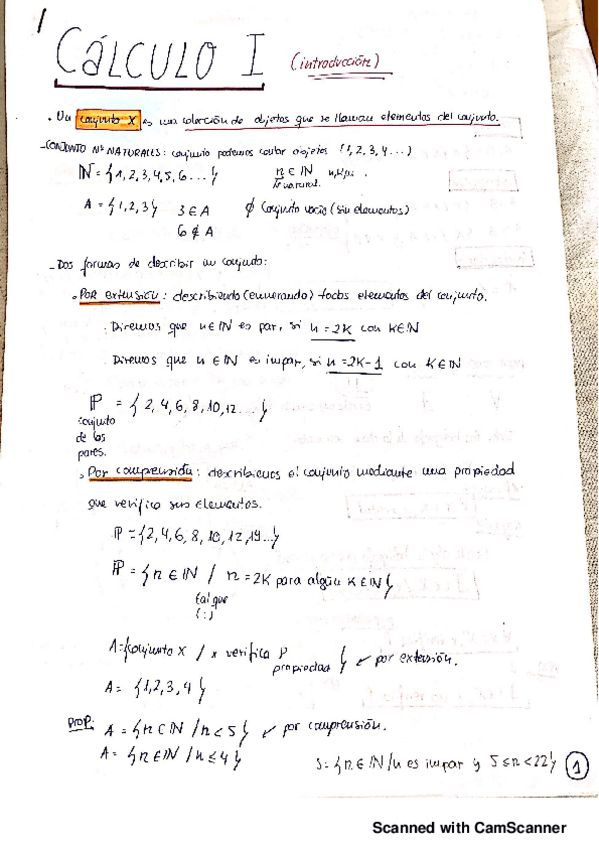 1
CÁLCULO I (introducción)
• Un conjunto X es una colección de objetos que se llaman elementos del conjunto.
- CONJUNTO Nº NATURALES: conjunto podemos contar objetos (1, 2, 3, 4 ...)
ℕ = {1, 2, 3, 4, 5, 6 ...} n ∈ ℕ
nº natural.
A = {1, 2, 3} 3 ∈ A ∅ Conjunto vacío (sin elementos)
6 ∉ A
- Dos formas de describir un conjunto:
• Por extensión: describiendo (enumerando) todos elementos del conjunto.
. Diremos que n ∈ ℕ es par, si n = 2K con K ∈ ℕ
. Diremos que n ∈ ℕ es impar, si n = 2K - 1 con K ∈ ℕ
ℙ = {2, 4, 6, 8, 10, 12 ...}
conjunto
de los
pares.
• Por comprensión: describimos el conjunto mediante una propiedad
que verifica sus elementos.
ℙ = {2, 4, 6, 8, 10, 12, 14 ...}
ℙ = {n ∈ ℕ / n = 2K para algún K ∈ ℕ}
tal que
(:)
A = {conjunto X / x verifica P } ✓ por extensión.
propiedad
A = {1, 2, 3, 4}
Prop: A = {n ∈ ℕ / n < 5} ✓ por comprensión.
A = {n ∈ ℕ / n ≤ 4} S = {n ∈ ℕ / n es impar y 5 ≤ n < 22} 1
Scanned with CamScanner